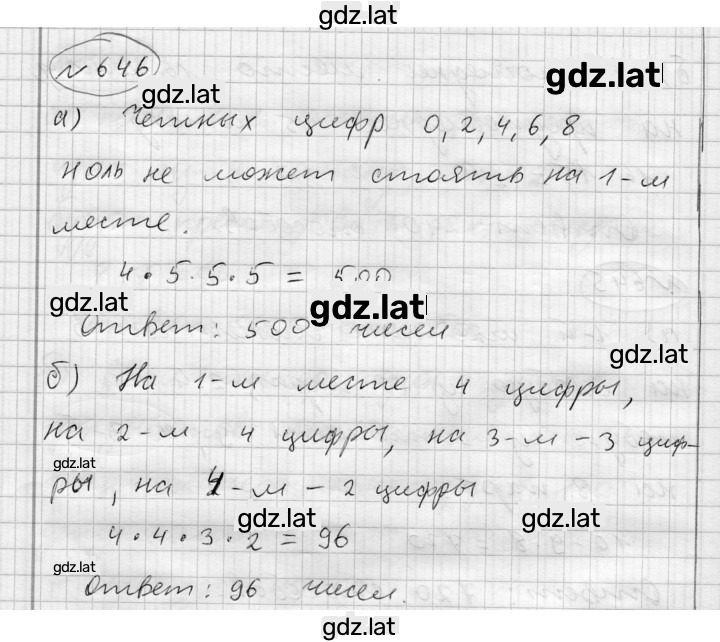 gdz.lat
№ 646
gdz.lat
gdz.lat
а) Четных цифр 0, 2, 4, 6, 8
ноль не может стоять на 1-м
месте.
4 · 5 · 5 · 5 = 500
gdz.lat
gdz.lat
Ответ: 500 чисел
gdz.lat
б) На 1-м месте 4 цифры,
на 2-м 4 цифры, на 3-м – 3 циф-
gdz.lat
ры, на 4-м – 2 цифры
gdz.lat
gdz.lat
4 · 4 · 3 · 2 = 96
gdz.lat
Ответ: 96 чисел.
gdz.lat